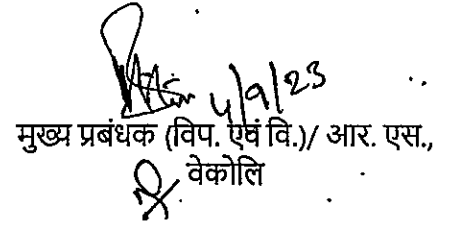 4/9/23
मुख्य प्रबंधक (विप. एवं वि.)/ आर. एस.,
वेकोलि